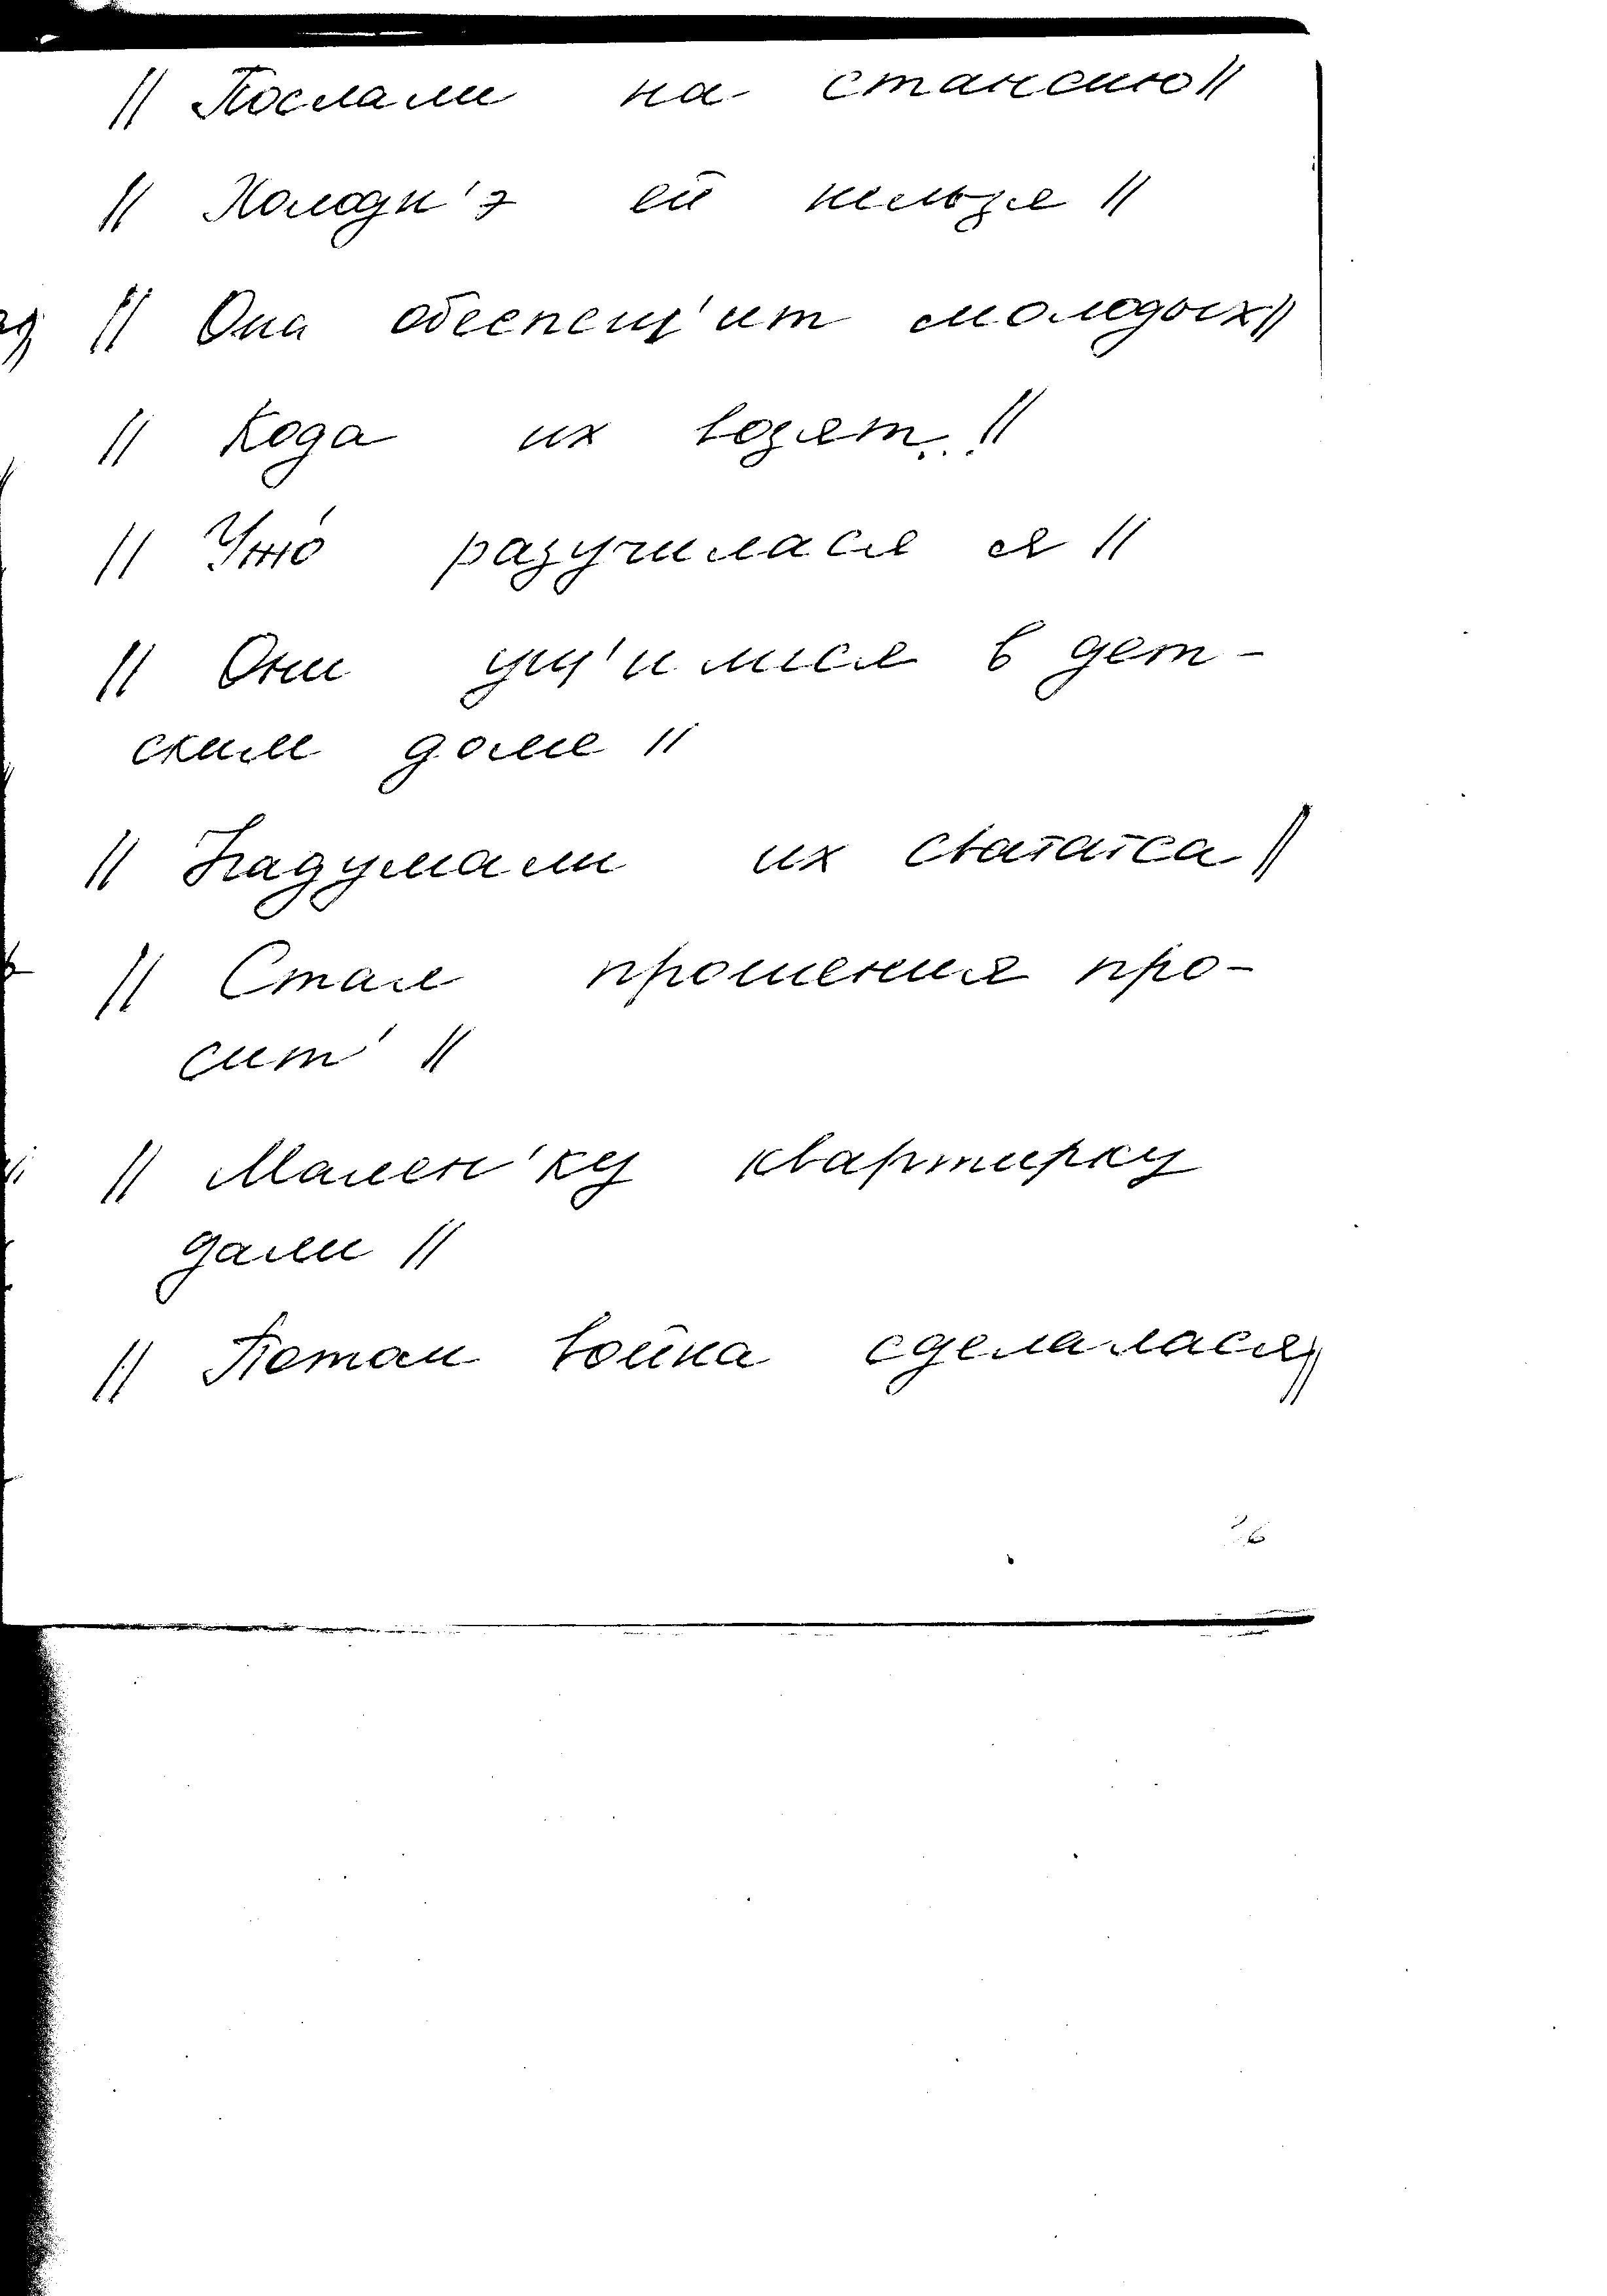 // Послали на стансию //
// Холодн'э ей нельзя //
// Она обеспещ'ит молодых //
// Кода их возят... //
// Ужо́ разучилася я //
// Они ущ'илися в дет-
ским доме //
// Надумали их сватаса //
// Стал прошения про-
сит' //
// Мален'ку квартирку
дали //
// Потом война сделалася //